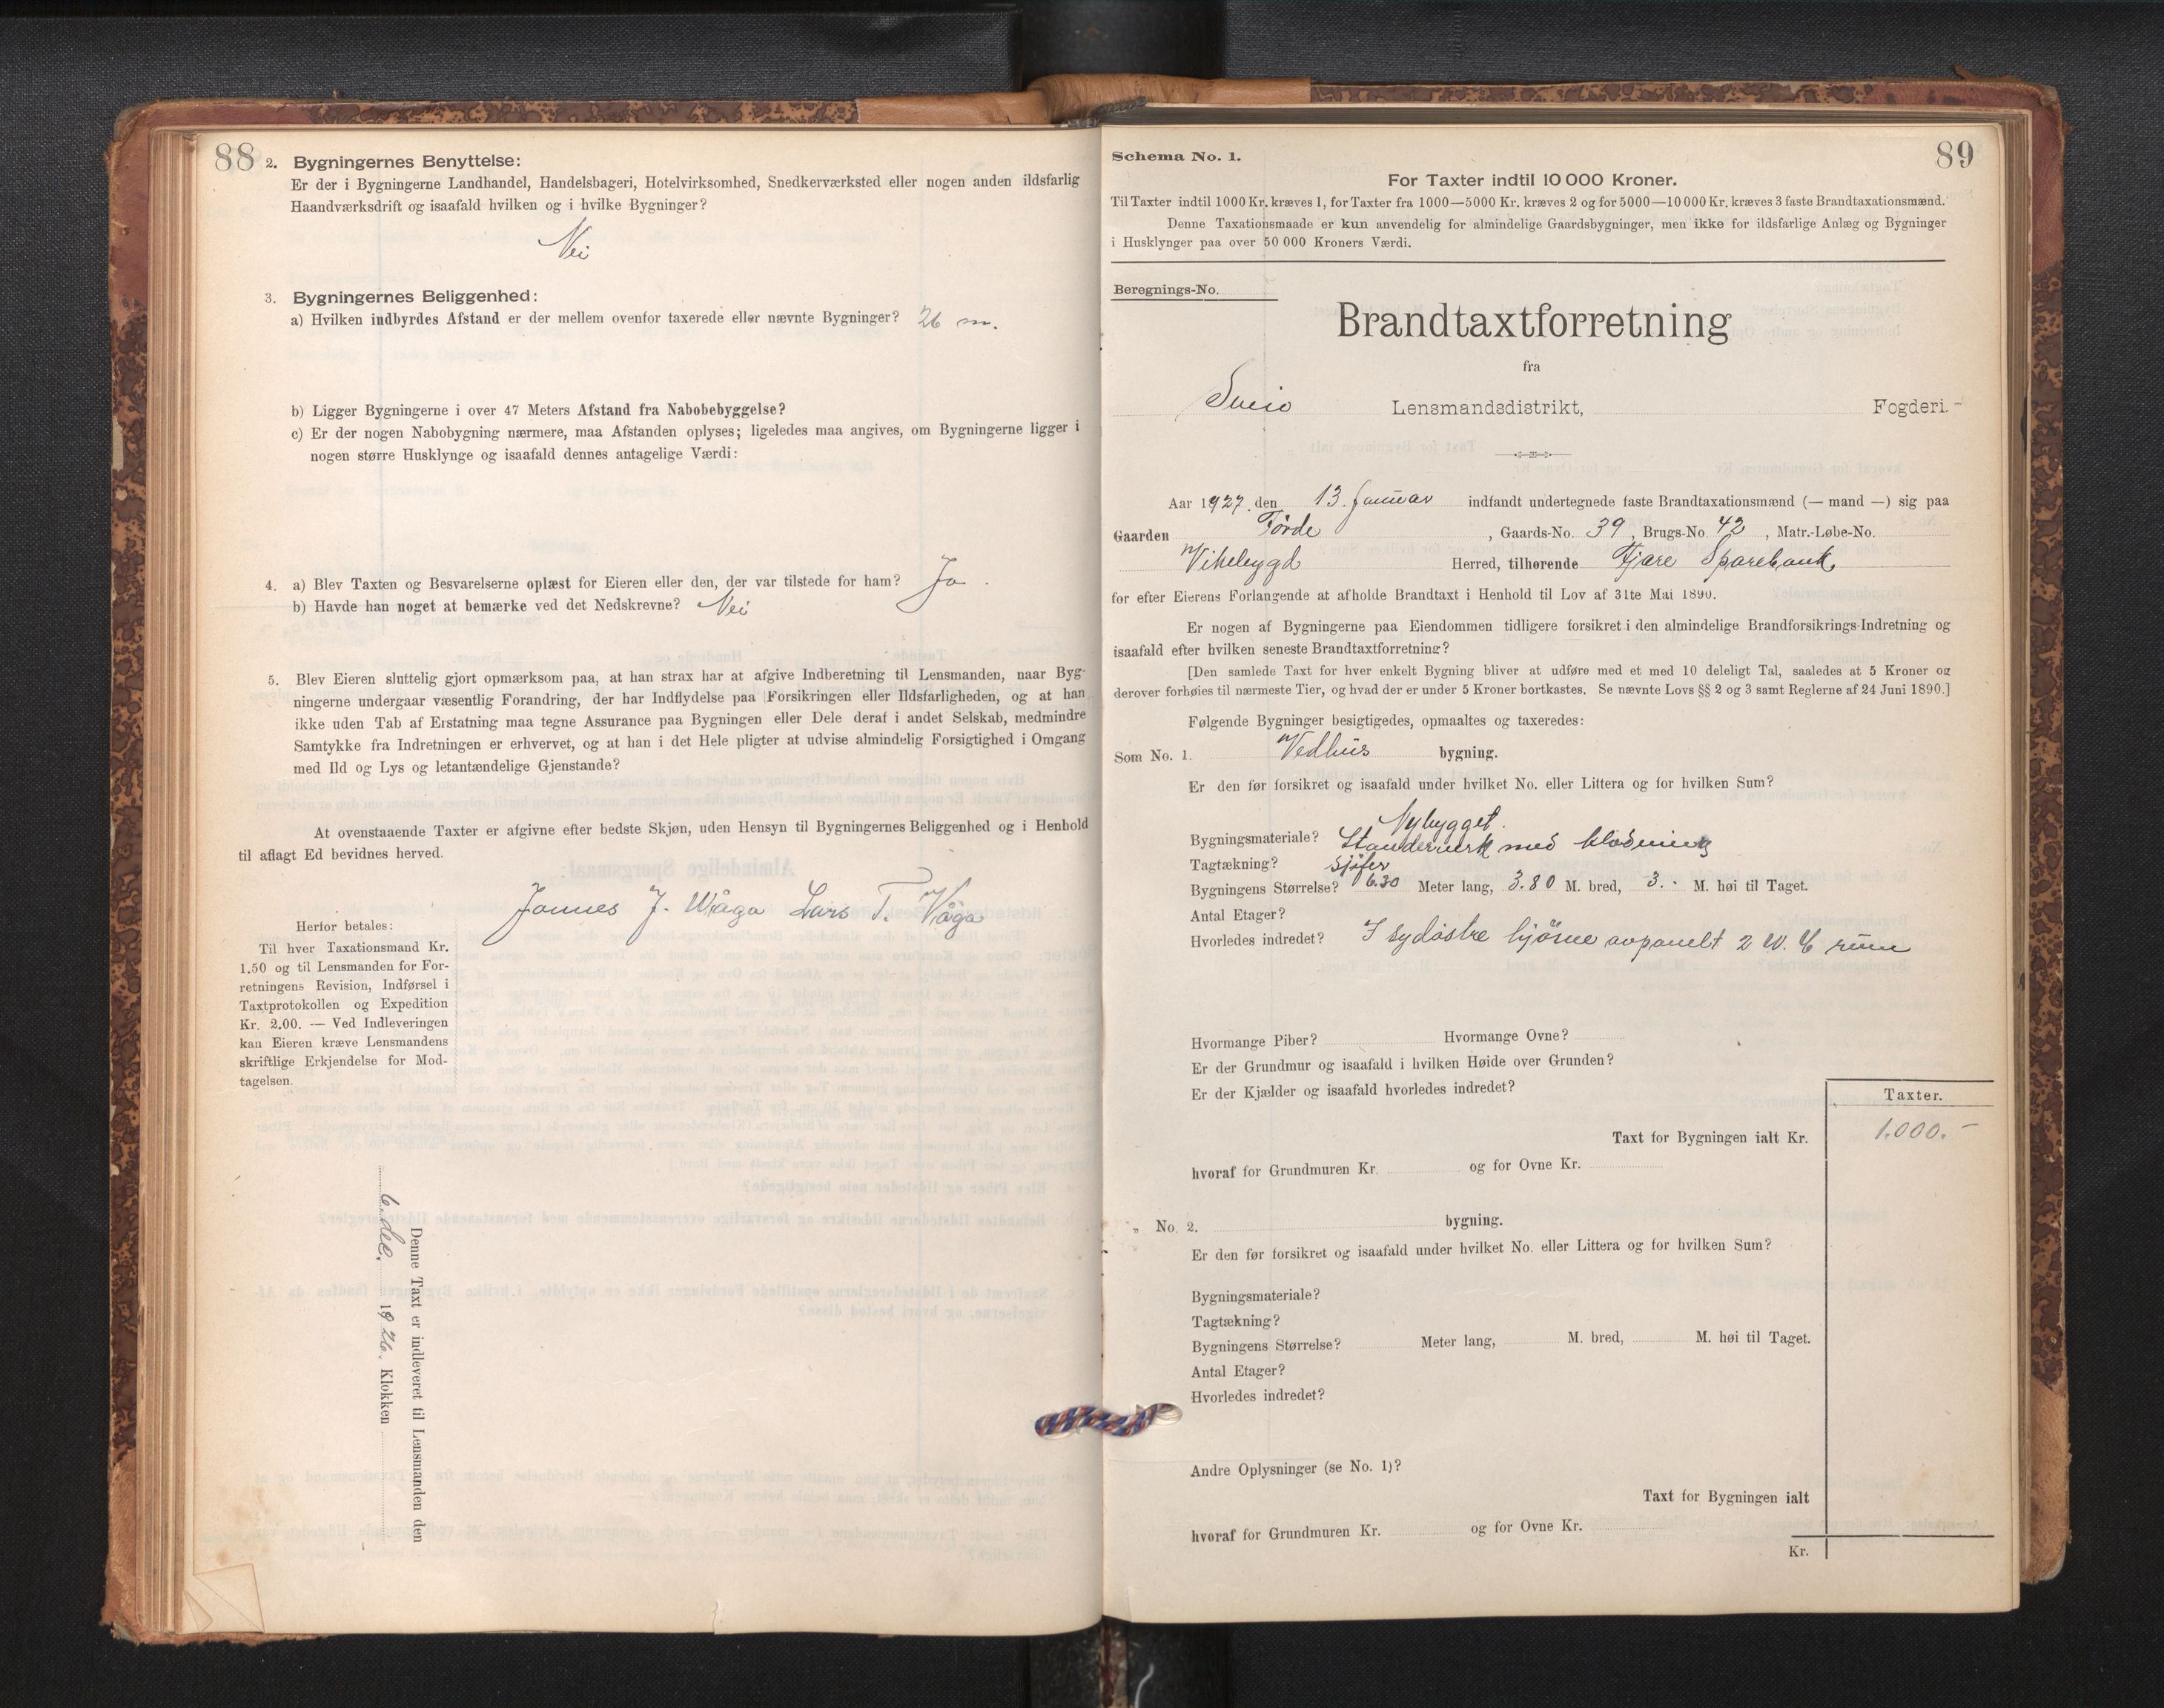 88
2. Bygningernes Benyttelse:
Er der i Bygningerne Landhandel, Handelsbageri, Hotelvirksomhed, Snedkerværksted eller nogen anden ildsfarlig
Haandværksdrift og isaafald hvilken og i hvilke Bygninger?
Nei
3. Bygningernes Beliggenhed:
a) Hvilken indbyrdes Afstand er der mellem ovenfor taxerede eller nævnte Bygninger? 26 m.
b) Ligger Bygningerne i over 47 Meters Afstand fra Nabobebyggelse?
c) Er der nogen Nabobygning nærmere, maa Afstanden oplyses; ligeledes maa angives, om Bygningerne ligger i
nogen større Husklynge og isaafald dennes antagelige Værdi:
4. a) Blev Taxten og Besvarelserne oplæst for Eieren eller den, der var tilstede for ham? Ja.
b) Havde han noget at bemærke ved det Nedskrevne? Nei
5. Blev Eieren sluttelig gjort opmærksom paa, at han strax har at afgive Indberetning til Lensmanden, naar Byg-
ningerne undergaar væsentlig Forandring, der har Indflydelse paa Forsikringen eller Ildsfarligheden, og at han
ikke uden Tab af Erstatning maa tegne Assurance paa Bygningen eller Dele deraf i andet Selskab, medmindre
Samtykke fra Indretningen er erhvervet, og at han i det Hele pligter at udvise almindelig Forsigtighed i Omgang
med Ild og Lys og letantændelige Gjenstande?
At ovenstaaende Taxter er afgivne efter bedste Skjøn, uden Hensyn til Bygningernes Beliggenhed og i Henhold
til aflagt Ed bevidnes herved.
Jannes J. Våga Lars T. Våga
Herfor betales:
Til hver Taxationsmand Kr.
1.50 og til Lensmanden for For-
retningens Revision, Indførsel i
Taxtprotokollen og Expedition
Kr. 2.00. — Ved Indleveringen
kan Eieren kræve Lensmandens
skriftlige Erkjendelse for Mod-
tagelsen.
Denne Taxt er indleveret til Lensmanden den
6. dec. 1926. Klokken
89
Schema No. 1.
For Taxter indtil 10 000 Kroner.
Til Taxter indtil 1000 Kr. kræves 1, for Taxter fra 1000—5000 Kr. kræves 2 og for 5000—10000 Kr. kræves 3 faste Brandtaxationsmænd.
Denne Taxationsmaade er kun anvendelig for almindelige Gaardsbygninger, men ikke for ildsfarlige Anlæg og Bygninger
i Husklynger paa over 50 000 Kroners Værdi.
Beregnings-No.
Brandtaxtforretning
fra
Sveio Lensmandsdistrikt, Fogderi.
Aar 1927 den 13. januar indfandt undertegnede faste Brandtaxationsmænd (— mand —) sig paa
Gaarden Förde, Gaards-No. 39, Brugs-No. 42, Matr.-Løbe-No.
Vikebygd Herred, tilhørende Fjære Sparebank
for efter Eierens Forlangende at afholde Brandtaxt i Henhold til Lov af 31te Mai 1890.
Er nogen af Bygningerne paa Eiendommen tidligere forsikret i den almindelige Brandforsikrings-Indretning og
isaafald efter hvilken seneste Brandtaxtforretning?
[Den samlede Taxt for hver enkelt Bygning bliver at udføre med et med 10 deleligt Tal, saaledes at 5 Kroner og
derover forhøies til nærmeste Tier, og hvad der er under 5 Kroner bortkastes. Se nævnte Lovs §§ 2 og 3 samt Reglerne af 24 Juni 1890.]
Følgende Bygninger besigtigedes, opmaaltes og taxeredes:
Som No. 1. Vedhus bygning.
Er den før forsikret og isaafald under hvilket No. eller Littera og for hvilken Sum?
Nybygget.
Bygningsmateriale? Standerverk med klædning
Tagtækning? sjifer
Bygningens Størrelse? 6.30 Meter lang, 3.80 M. bred, 3. M. høi til Taget.
Antal Etager?
Hvorledes indredet? I sydöstre hjörne avpanelt 2 W. C rum
Hvormange Piber? Hvormange Ovne?
Er der Grundmur og isaafald i hvilken Høide over Grunden?
Er der Kjælder og isaafald hvorledes indredet?
Taxter.
Taxt for Bygningen ialt Kr. 1.000.-
hvoraf for Grundmuren Kr. og for Ovne Kr.
„ No. 2. bygning.
Er den før forsikret og isaafald under hvilket No. eller Littera og for hvilken Sum?
Bygningsmateriale?
Tagtækning?
Bygningens Størrelse? Meter lang, M. bred, M. høi til Taget.
Antal Etager?
Hvorledes indredet?
Andre Oplysninger (se No. 1)?
Taxt for Bygningen ialt
hvoraf for Grundmuren Kr. og for Ovne Kr.
Kr.